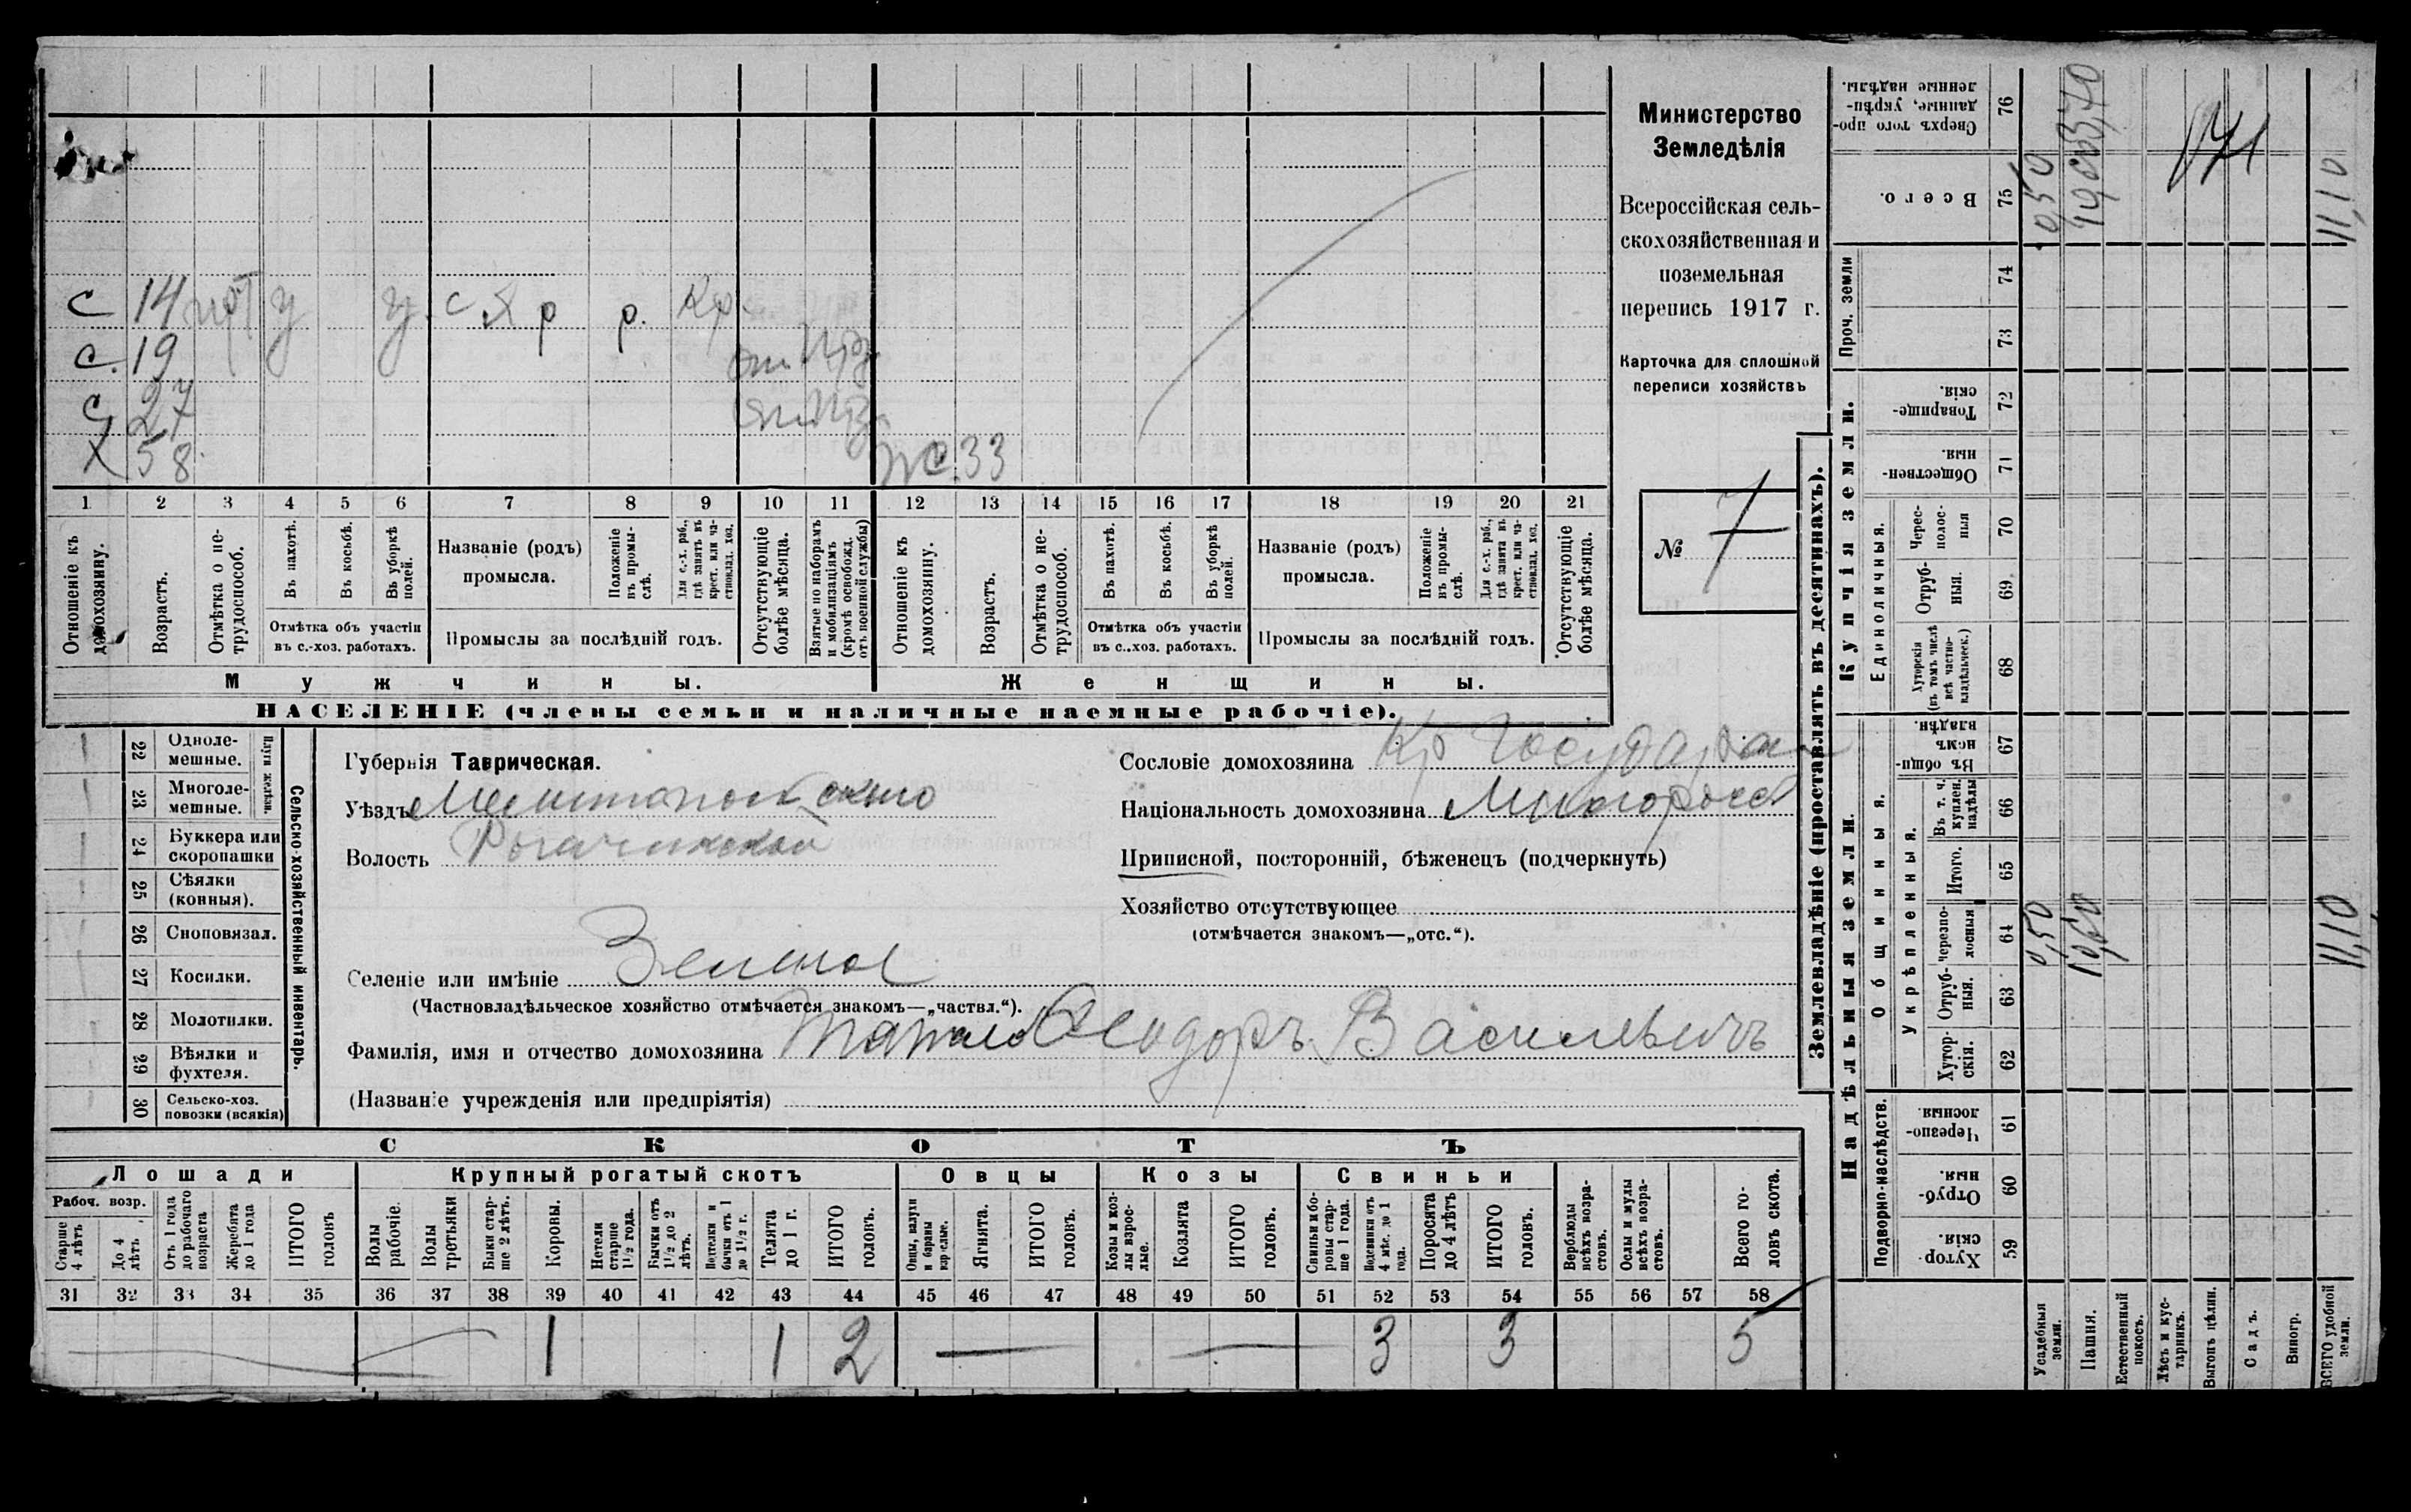 Министерство
Земледѣлія
Всероссійская сель-
скохозяйственная и
поземельная
перепись 1917 г.
Карточка для сплошной
переписи хозяйствъ
№ 7
с 14 у у. с х р р. Кр.
с. 19
с 27
х 58
ж 33
1 2 3 4 5 6 7 8 9 10 11 12 13 14 15 16 17 18 19 20 21
Отношеніе къ домохозяину.
Возрастъ.
Отмѣтка о не-трудоспособ.
Въ пахотѣ.
Въ косьбѣ.
Въ уборкѣ полей.
Отмѣтка объ участіи
въ с.-хоз. работахъ.
Названіе (родъ)
промысла.
Положеніе въ промы-слѣ.
Для с.-х. раб., гдѣ занятъ въ крест. или ча-стновлад. хоз.
Промыслы за послѣдній годъ.
Отсутствующіе болѣе мѣсяца.
Взятые по наборамъ и мобилизаціямъ (кромѣ освобожд. отъ военной службы)
Отношеніе къ домохозяину.
Возрастъ.
Отмѣтка о не-трудоспособ.
Въ пахотѣ.
Въ косьбѣ.
Въ уборкѣ полей.
Отмѣтка объ участіи
въ с..хоз. работахъ.
Названіе (родъ)
промысла.
Положеніе въ промы-слѣ.
Для с.-х. раб., гдѣ занята въ крест. или ча-стновлад. хоз.
Промыслы за послѣдній годъ.
Отсутствующіе болѣе мѣсяца.
Мужчины.
Женщины.
НАСЕЛЕНІЕ (члены семьи и наличные наемные рабочіе).
22 Одноле-мешные.
23 Многоле-мешные.
24 Буккера или скоропашки
25 Сѣялки (конныя).
26 Сноповязал.
27 Косилки.
28 Молотилки.
29 Вѣялки и фухтеля.
30 Сельско-хоз. повозки (всякія)
Сельско-хозяйственный инвентарь.
Губернія Таврическая.
Уѣздъ Мелитопольскаго
Волость Рогачикской
Селеніе или имѣніе Зелена
(Частновладѣльческое хозяйство отмѣчается знакомъ—„частвл.“).
Фамилія, имя и отчество домохозяина Ѳеодоръ Васильевичъ
(Названіе учрежденія или предпріятія)
Сословіе домохозяина Кр
Національность домохозяина Малоросс
Приписной, посторонній, бѣженецъ (подчеркнуть)
Хозяйство отсутствующее
(отмѣчается знакомъ—„отс.“).
СКОТЪ
Лошади
Крупный рогатый скотъ
Овцы
Козы
Свиньи
Рабоч. возр.
Старше 4 лѣтъ
До 4 лѣтъ
Отъ 1 года до рабочаго возраста
Жеребята до 1 года
ИТОГО головъ
Волы рабочіе.
Волы третьяки
Быки стар-ше 2 лѣтъ.
Коровы.
Нетели старше 1½ года.
Бычки отъ 1½ до 2 лѣтъ.
Подтелки и бычки отъ 1 до 1½ г.
Телята до 1 г.
ИТОГО головъ.
Овцы, валухи и бараны взрослые.
Ягнята.
ИТОГО головъ.
Козы и коз-лы взрос-лые.
Козлята
ИТОГО головъ.
Свиньи и бо-ровы стар-ше 1 года.
Подсвинки отъ 4 мѣс. до 1 года.
Поросята до 4 лѣтъ
ИТОГО головъ.
Верблюды всѣхъ возра-стовъ.
Ослы и мулы всѣхъ возра-стовъ.
Всего го-ловъ скота.
31 32 33 34 35 36 37 38 39 40 41 42 43 44 45 46 47 48 49 50 51 52 53 54 55 56 57 58
1 1 2 3 3 5
Землевладѣніе (проставлять въ десятинахъ).
Купчія земли.
Надѣльныя земли.
Сверхъ того про-данные, укрѣп-ленные надѣлы. 76
Всего. 75
Проч. земли
74
73
Товарище-скія. 72
Обществен-ныя. 71
Единоличныя.
Черес-полос-ныя 70
Отруб-ныя. 69
Хуторскія (въ томъ числѣ всѣ частно-владѣльческ.) 68
Общинныя.
Въ общи-номъ владѣн. 67
Укрѣпленныя.
Въ т. ч. куплен. надѣлы 66
Итого. 65
черезпо-лосныя 64
Отруб-ныя. 63
Хутор-скія. 62
Подворно-наслѣдств.
Черезпо-лосныя. 61
Отруб-ныя. 60
Хутор-скія. 59
Усадебныя земли. 0,50 0,50
Пашня. 10,60
Естественный покосъ.
Лѣсъ и кус-тарникъ.
Выгонъ цѣлин.
Садъ.
Виногр.
ВСЕГО удобной земли. 11,10 11,10